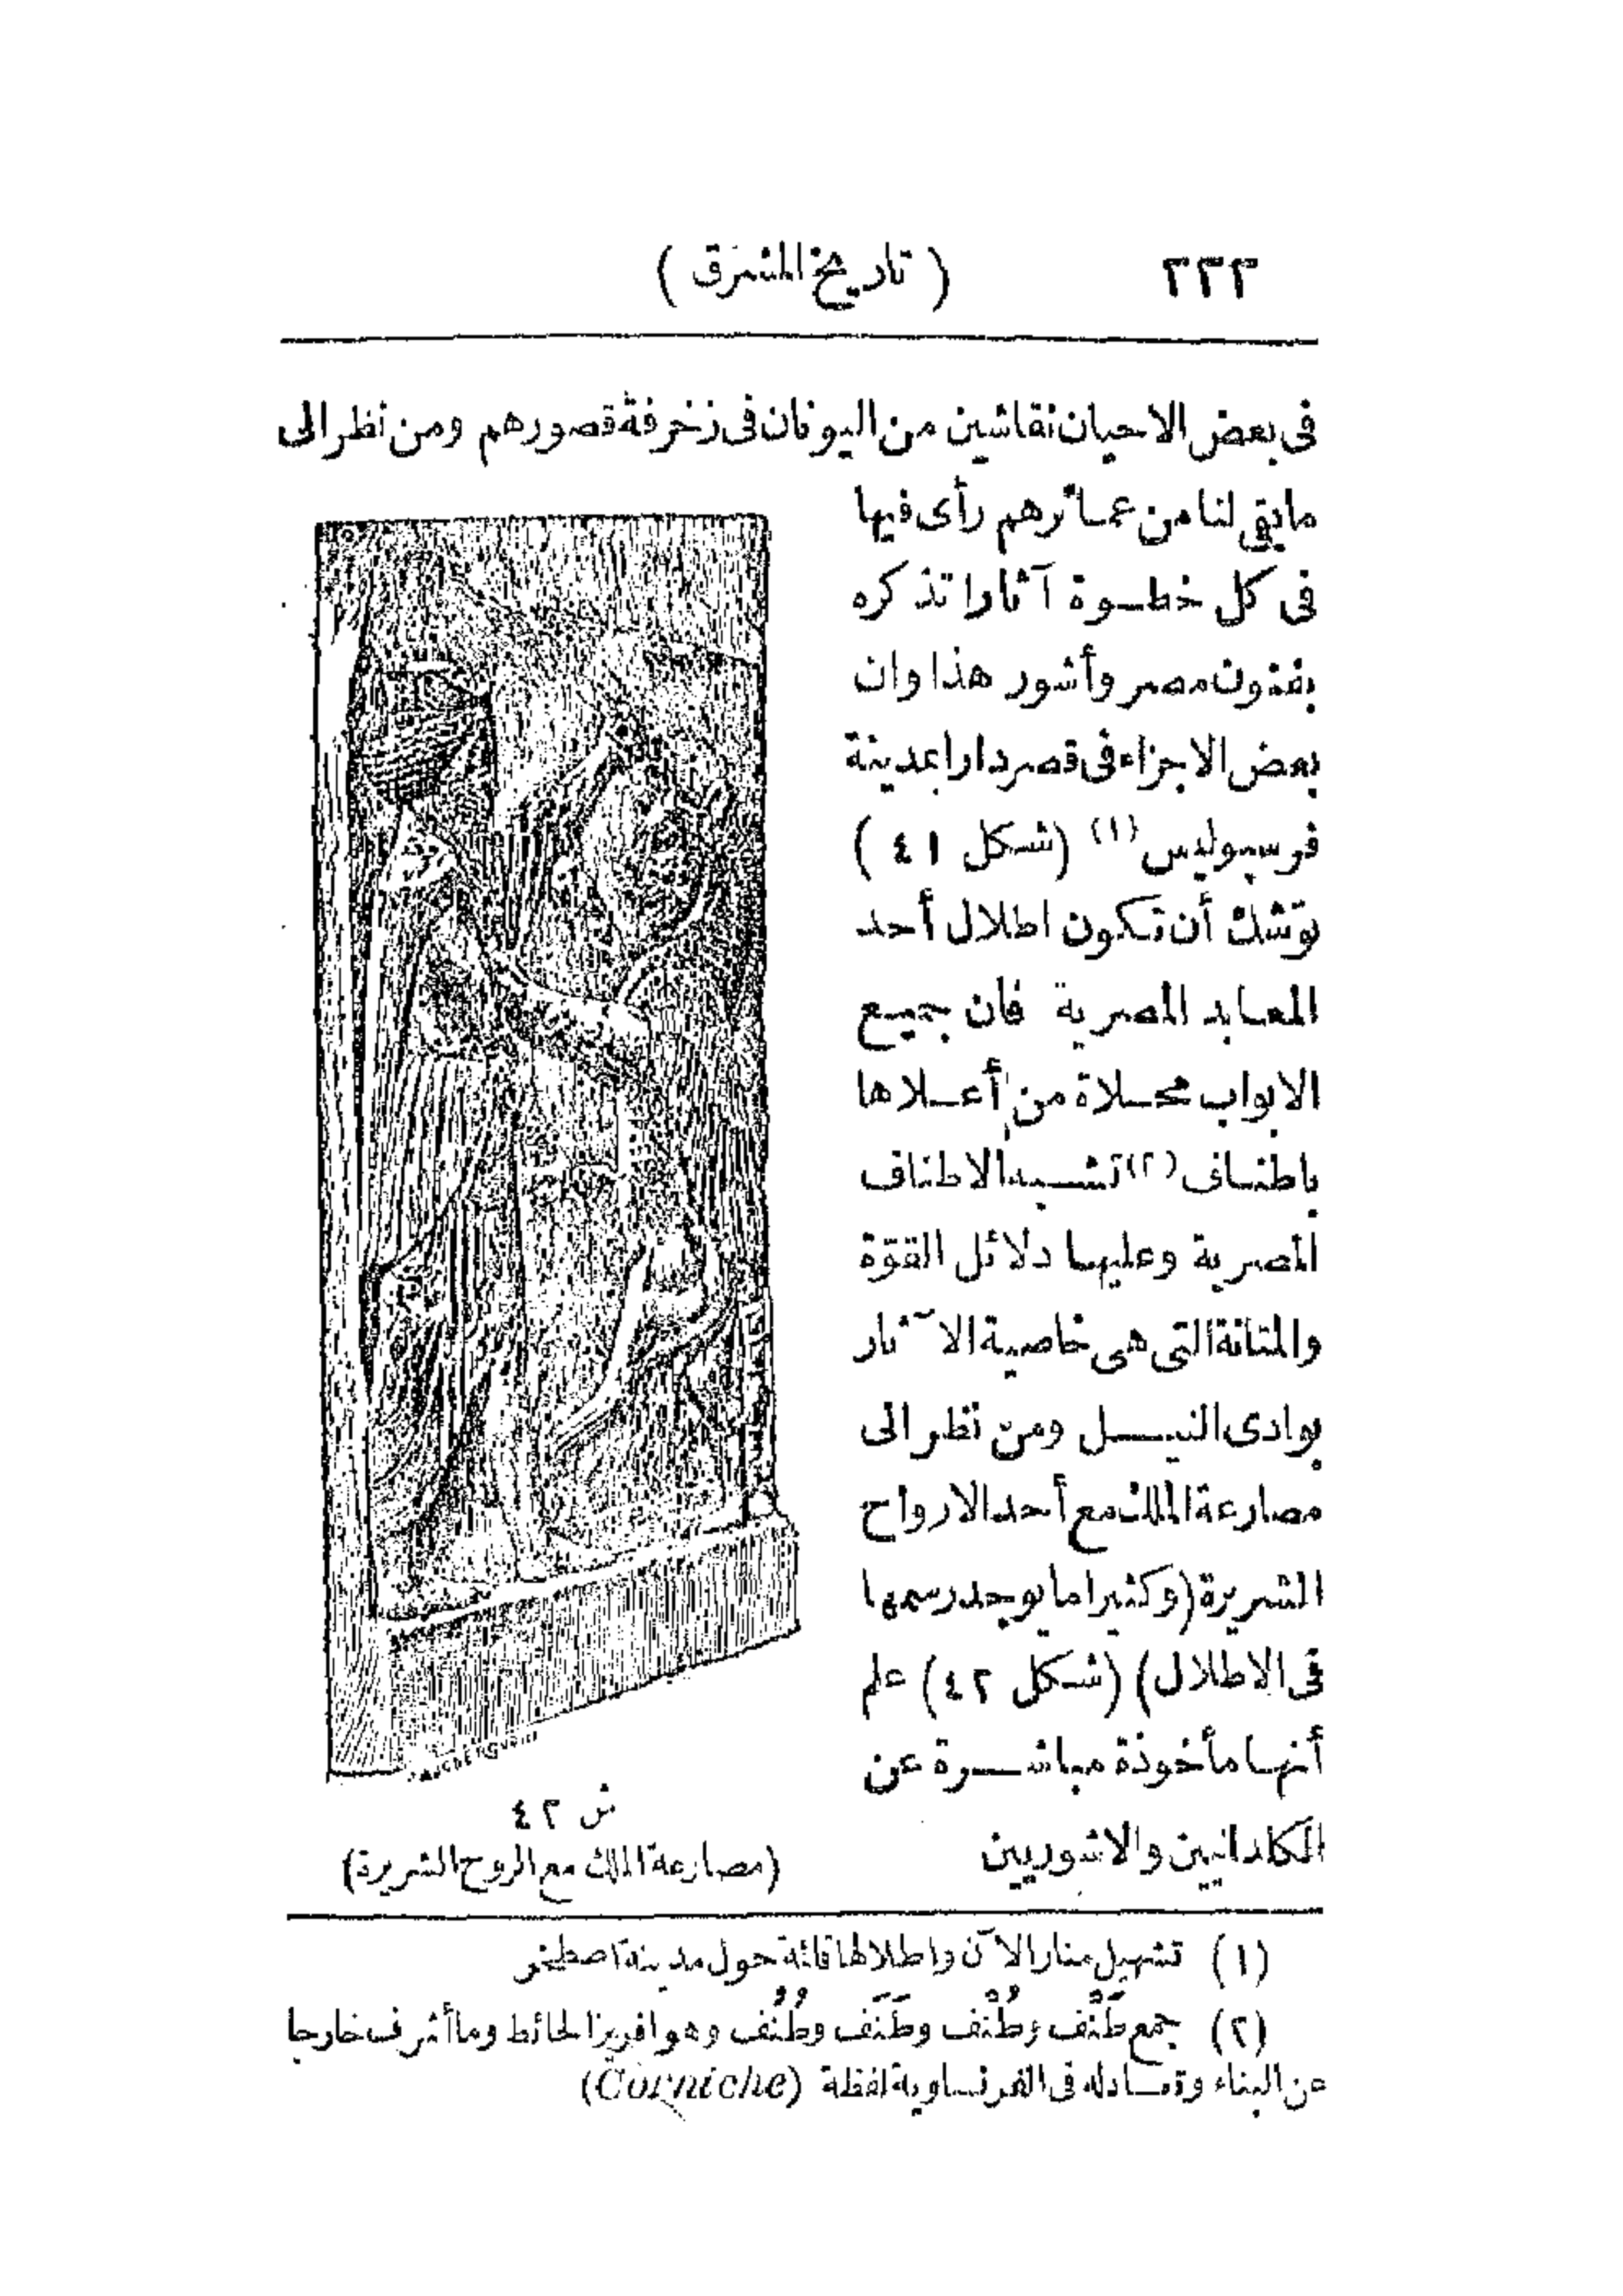 ٢٣٢
( تاريخ المشرق )
فى بعض الاحيان نقاشين من اليونان فى زخرفة قصورهم ومن نظر الى
ما بقى لنا من عمائرهم رأى فيها
فى كل خطوة آثارا تذكره
بفنون مصر وأشور هذا وان
بعض الاجزاء فى قصر دارا بمدينة
فرسپوليس (١) (شكل ٤١)
توشك أن تكون اطلال أحد
المعابد المصرية فان جميع
الابواب محلاة من أعلاها
باطناف (٢) تشبه الاطناف
المصرية وعليها دلائل القوّة
والمتانة التى هى خاصية الآثار
بوادى النيل ومن نظر الى
مصارعة الملك مع أحد الارواح
الشريرة (وكثيرا ما يوجد رسمها
فى الاطلال) (شكل ٤٢) علم
أنها مأخوذة مباشرة عن
الكلدانيين والاشوريين
ش ٤٢
(مصارعة الملك مع الروح الشريرة)
(١) تشهيل منار الآن واطلالها قائمة حول مدينة اصطخر
(٢) جمع طَنْف وطُنْف وطَنَف وطُنُف وهو افريز الحائط وما أشرف خارجا
عن البناء وتعادله فى الفرنساوية لفظة (Corniche)